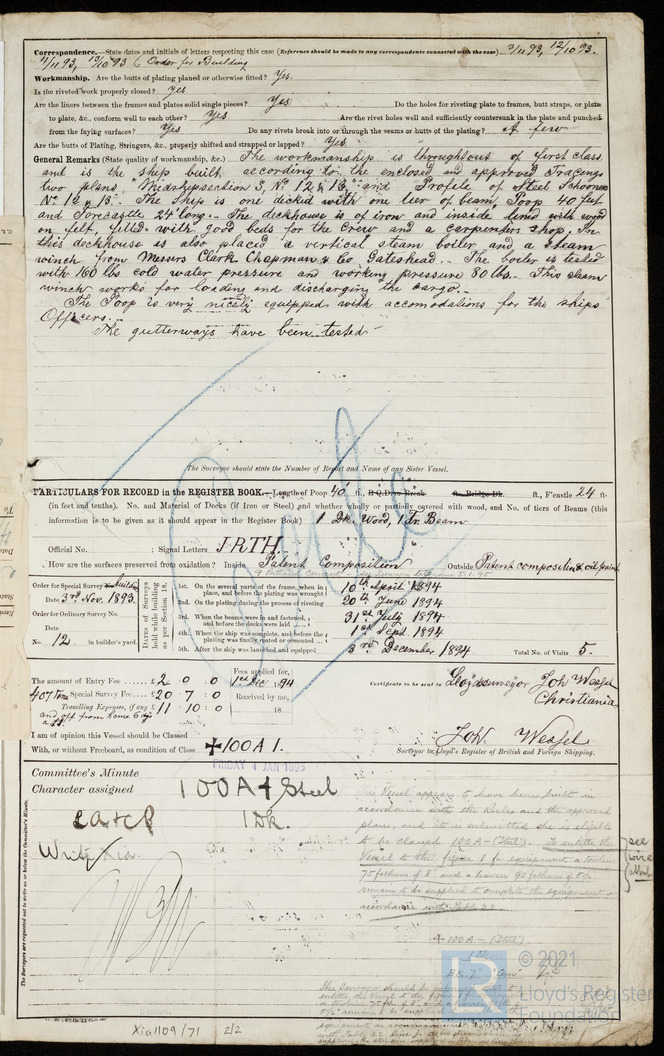 Correspondence.—State dates and initials of letters respecting this case (Reference should be made to any correspondence connected with the case) 2/11 93, 12/10 93.
11/11 93, 19/10 93 (Order for Building
Workmanship. Are the butts of plating planed or otherwise fitted? Yes.
Is the riveted work properly closed? Yes
Are the liners between the frames and plates solid single pieces? Yes Do the holes for riveting plate to frames, butt straps, or plate
to plate, &c., conform well to each other? Yes Are the rivet holes well and sufficiently countersunk in the plate and punched
from the faying surfaces? Yes Do any rivets break into or through the seams or butts of the plating? A few
Are the butts of Plating, Stringers, &c., properly shifted and strapped or lapped? Yes.
General Remarks (State quality of workmanship, &c.) The workmanship is throughout of first class
and is the ship built according to the enclosed and approved Tracings
two plans, "Midshipsection S, No 12 & 13" and Profile of Steel Schooner
No 12 & 13. The Ship is one decked with one tier of beam, Poop 40 feet
and Forcastle 24' long. The deckhouse is of iron and inside lined with wood
on felt, filled with good beds for the Crew and a carpenters shop. In
this deckhouse is also placed a vertical steam boiler and a steam
winch from Messrs Clark Chapman & Co Gateshead. The boiler is tested
with 160 lbs cold water pressure and working pressure 80 lbs. This steam
winch works for loading and discharging the cargo.
The Poop is very nicely equipped with accomodations for the ships
Officers.
The gutterways have been tested
The Surveyor should state the Number of Report and Name of any Sister Vessel.
PARTICULARS FOR RECORD in the REGISTER BOOK.—Length of Poop 40 ft., R.Q.D. or Break ft., Bridge Dk. ft., F'castle 24 ft
(in feet and tenths). No. and Material of Decks (if Iron or Steel) and whether wholly or partially covered with wood, and No. of tiers of Beams (this
information is to be given as it should appear in the Register Book) 1 Dk. Wood, 1 Tr. Beam
Official No. ; Signal Letters J.R.T.H.
How are the surfaces preserved from oxidation? Inside Patent Composition Outside Patent composition & oil paint
Order for Special Survey No.
Date 3rd Nov. 1893
Order for Ordinary Survey No.
Date
No. 12 in builder's yard.
Dates of Surveys held while building as per Section 18.
1st. On the several parts of the frame, when in place, and before the plating was wrought 10th April 1894
2nd. On the plating during the process of riveting 20th June 1894
3rd. When the beams were in and fastened, and before the decks were laid 31st July 1894
4th. When the ship was complete, and before the plating was finally coated or cemented 1st Sept. 1894
5th. After the ship was launched and equipped 3rd December 1894 Total No. of Visits 5.
The amount of Entry Fee £2 0 0 Fees applied for,
407 tons Special Survey Fee £20 7 0 1st Dec 1894
Travelling Expenses, if any £11 10 0 Received by me,
18
Certificate to be sent to Lloydsurveyor Joh Wessel
Christiania
I am of opinion this Vessel should be Classed
With, or without Freeboard, as condition of Class ✠100A1.
Joh. Wessel
Surveyor to Lloyd's Register of British and Foreign Shipping.
FRIDAY 4 JAN 1895
Committee's Minute
Character assigned 100A1 Steel
1 Dk.
Write Xia
This Vessel appears to have been built in
accordance with the Rules and the approved
plans, and it is submitted she is eligible
to be classed 100A-(Steel). To entitle the
Vessel to the figure 1 for equipment a
75 fathoms of 8" and a hawser 90 fathoms of 5½"
remain to be supplied to complete the equipment in
accordance with Table 22.
see
wire
✠100A-(Steel)
The Surveyors are requested not to write on or below the Committee's Minute.
© 2021
LR
Lloyd's Register
Foundation
Xia1109/71 2/2